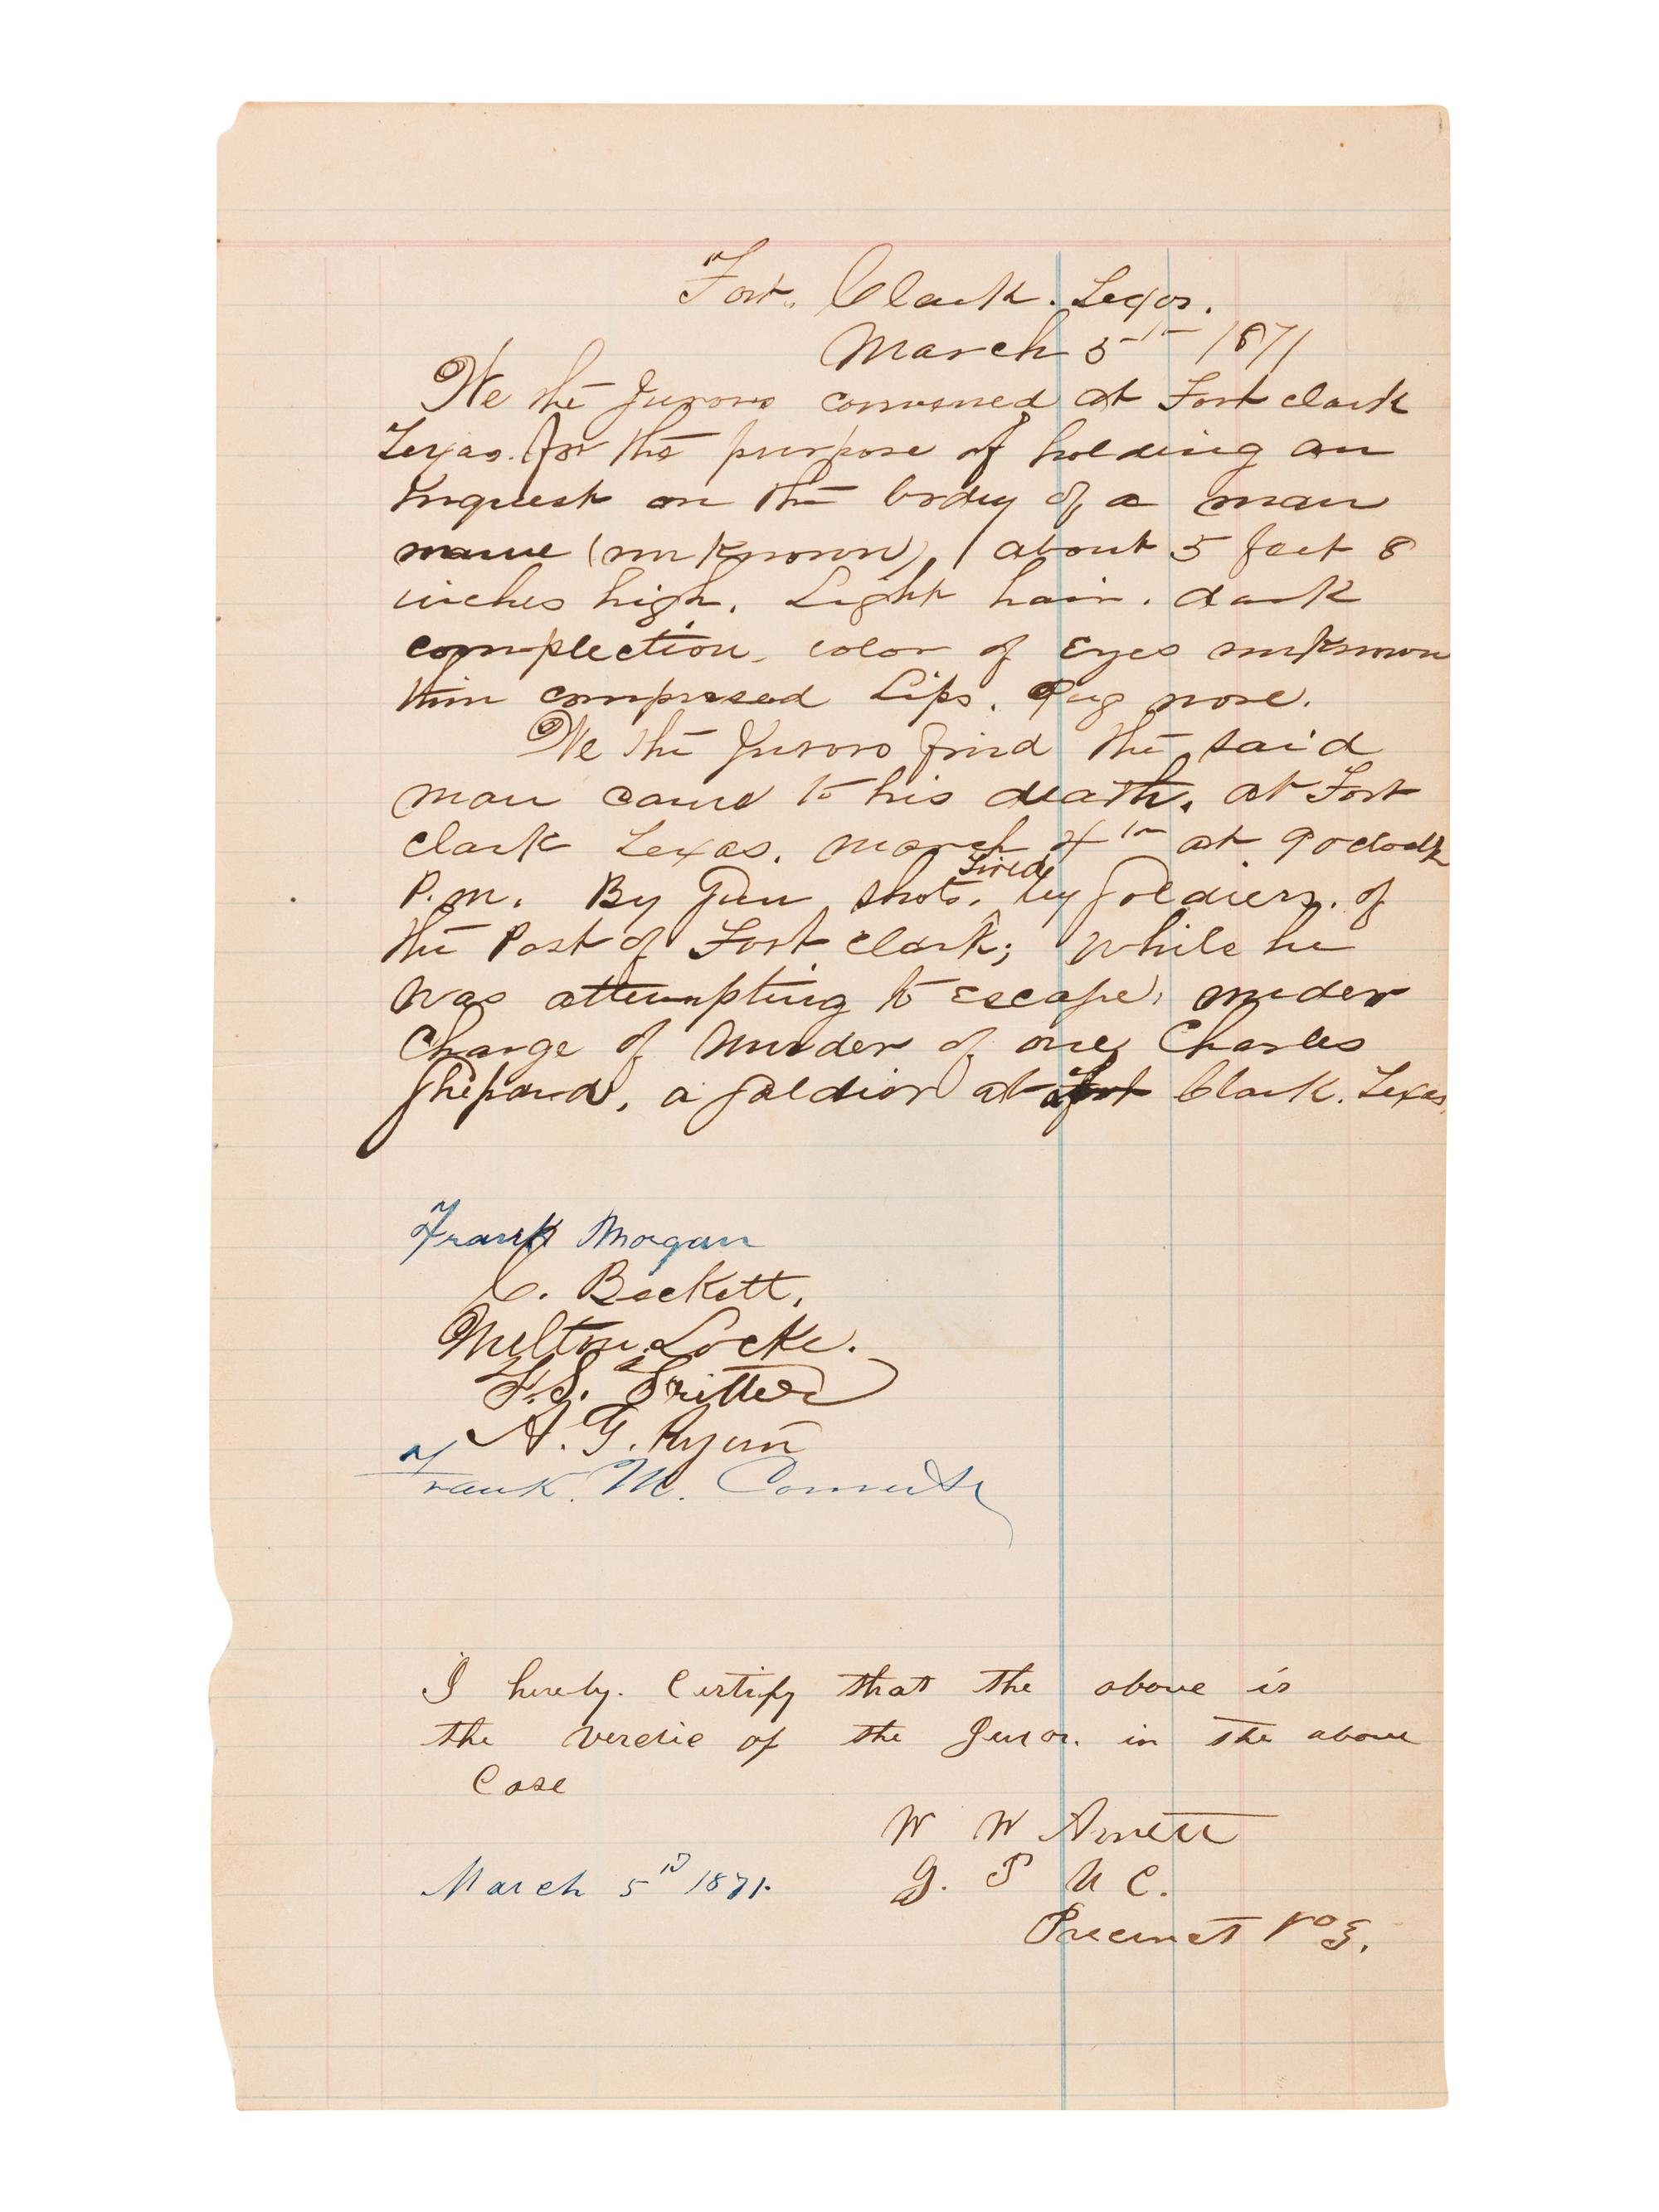 Fort. Clark. Texas.
March 5th 1871
We the Jurors convened at Fort clark
Texas. for the purpose of holding an
Inquest on the body of a man
name (unknown), about 5 feet 8
inches high. Light hair. dark
complection, color of Eyes unknown
thin compresed Lips. Pug nose.
We the Jurors find the said
man came to his death, at Fort
clark Texas. March 4th at 9 oclock
P.m. By Gun shots. fired by Soldiers. of
the Post of Fort clark; while he
was attempting to escape, under
Charge of Murder of one Charles
Shepard, a Soldier at Fort Clark. Texas.
Frank Morgan
C. Beckett.
Melton Locke.
F. S. Fritter
A. G. Ryan
Frank. M.
I hereby. Certify that the above is
the verdic of the Juror. in the above
Case
W W Arnett
March 5th 1871.
J. P U C.
Precinct No 3.